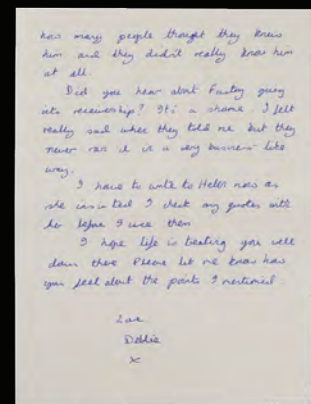 how many people thought they knew
him and they didn't really know him
at all.
Did you hear about going
into receivership? It's a shame. I felt
really sad when they told me but they
never ran it in a very business like
way.
I have to write to Helen now as
she insisted I check any quotes with
her before I use them
I hope life is treating you well
down there Please let me know how
you feel about the points I mentioned.
Love
Debbie
x